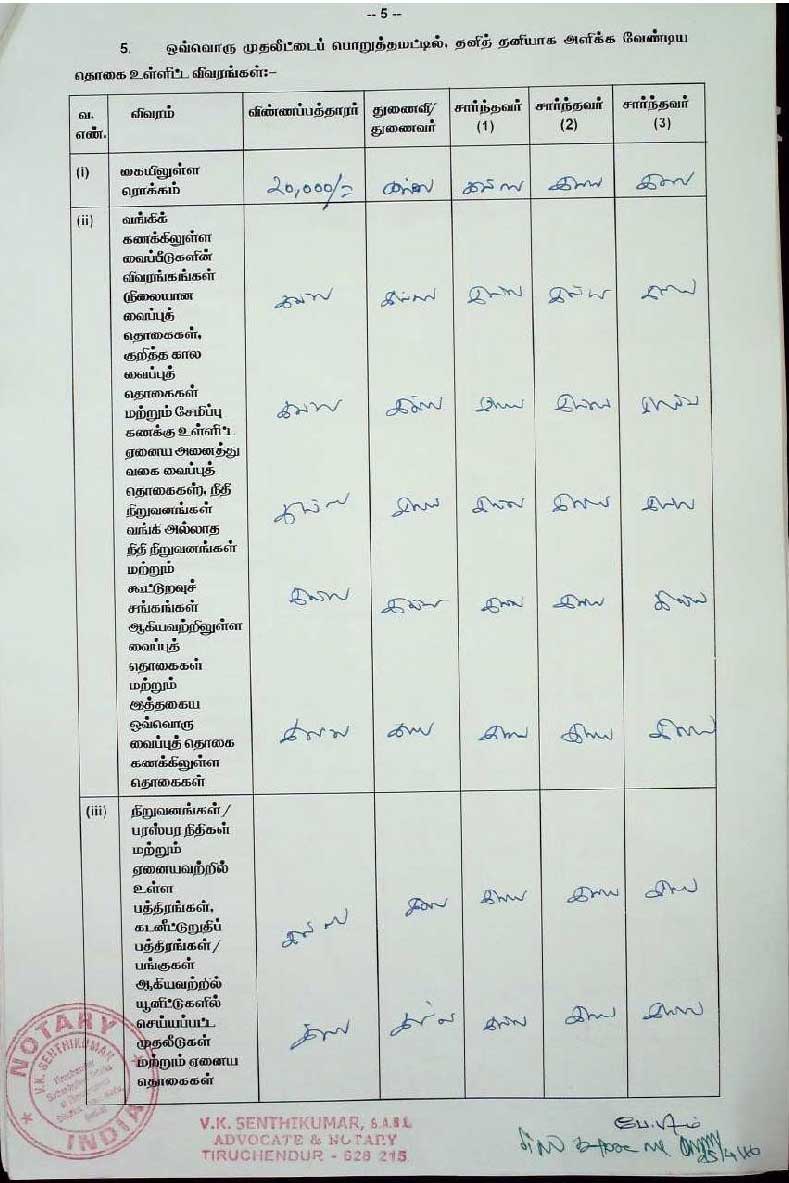 -- 5 --
5. ஒவ்வொரு முதலீட்டைப் பொறுத்தமட்டில், தனித் தனியாக அளிக்க வேண்டிய
தொகை உள்ளிட்ட விவரங்கள்:–
வ. எண். விவரம் விண்ணப்பத்தாரர் துணைவி/ துணைவர் சார்ந்தவர் (1) சார்ந்தவர் (2) சார்ந்தவர் (3)
(i) கையிலுள்ள
ரொக்கம் 20,000/= இல்லை இல்லை இல்லை இல்லை
(ii) வங்கிக்
கணக்கிலுள்ள
வைப்பீடுகளின்
விவரங்கங்கள்
(நிலையான இல்லை இல்லை இல்லை இல்லை இல்லை
வைப்புத்
தொகைகள்,
குறித்த கால
வைப்புத்
தொகைகள்
மற்றும் சேமிப்பு இல்லை இல்லை இல்லை இல்லை இல்லை
கணக்கு உள்ளிட்ட
ஏனைய அனைத்து
வகை வைப்புத்
தொகைகள்), நிதி
நிறுவனங்கள் இல்லை இல்லை இல்லை இல்லை இல்லை
வங்கி அல்லாத
நிதி நிறுவனங்கள்
மற்றும்
கூட்டுறவுச் இல்லை இல்லை இல்லை இல்லை இல்லை
சங்கங்கள்
ஆகியவற்றிலுள்ள
வைப்புத்
தொகைகள்
மற்றும்
இத்தகைய
ஒவ்வொரு
வைப்புத் தொகை இல்லை இல்லை இல்லை இல்லை இல்லை
கணக்கிலுள்ள
தொகைகள்
(iii) நிறுவனங்கள்/
பரஸ்பர நிதிகள்
மற்றும்
ஏனையவற்றில்
உள்ள
பத்திரங்கள், இல்லை இல்லை இல்லை இல்லை இல்லை
கடனீட்டுறுதிப்
பத்திரங்கள்/
பங்குகள்
ஆகியவற்றில்
யூனிட்டுகளில்
செய்யப்பட்ட இல்லை இல்லை இல்லை இல்லை இல்லை
முதலீடுகள்
மற்றும் ஏனைய
தொகைகள்
NOTARY
V.K. SENTHIKUMAR
INDIA
V.K. SENTHIKUMAR, B.A.B.L
ADVOCATE & NOTARY
TIRUCHENDUR - 628 215